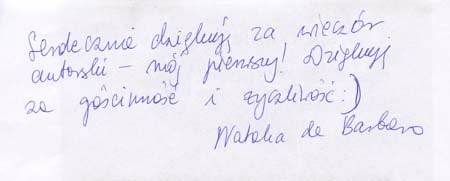 Serdecznie dziękuję za wieczór
autorski – mój pierwszy! Dziękuję
za gościnność i życzliwość :)
Natalia de Barbaro